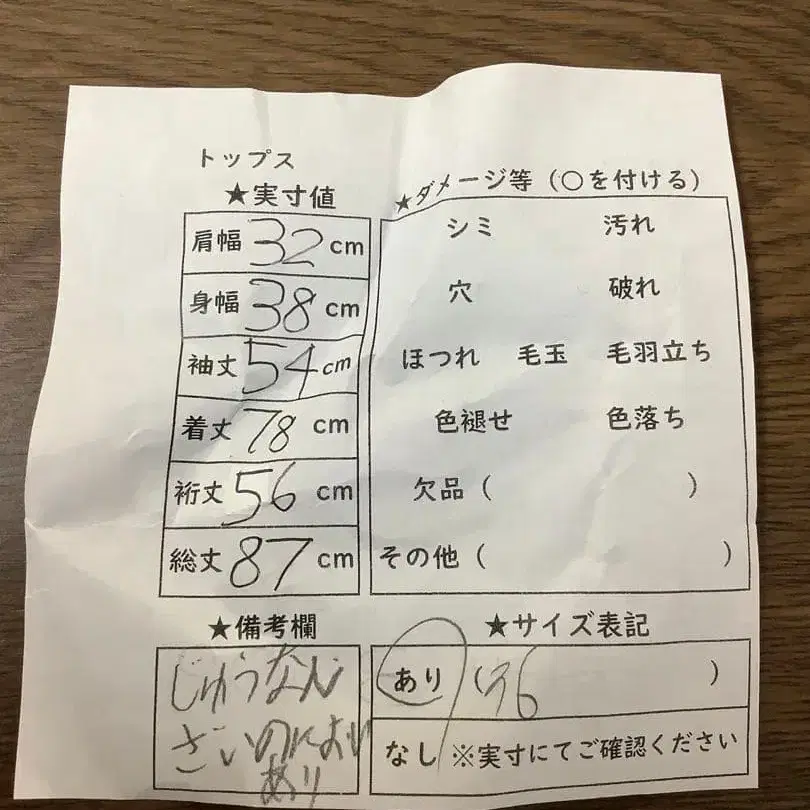 トップス
★実寸値
肩幅 32 cm
身幅 38 cm
袖丈 54 cm
着丈 78 cm
裄丈 56 cm
総丈 87 cm
★ダメージ等(○を付ける)
シミ 汚れ
穴 破れ
ほつれ 毛玉 毛羽立ち
色褪せ 色落ち
欠品( )
その他( )
★備考欄
じゅうなん
ざいのにおい
あり
★サイズ表記
あり( 36 )
なし ※実寸にてご確認ください